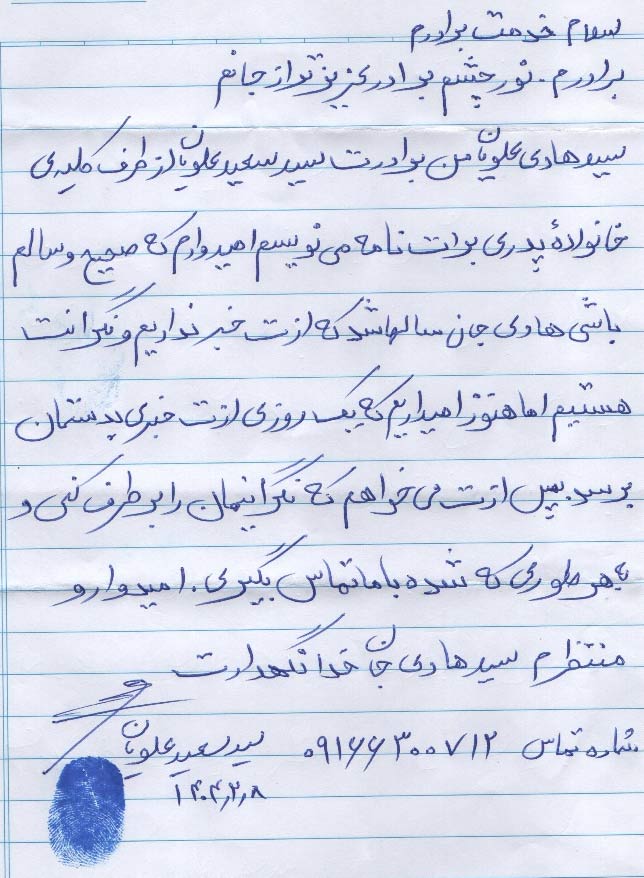 سلام خدمت برادرم
برادرم. نور چشم برادر عزیزتر از جانم
سید هادی علویان من برادرت سید سعید علویان از طرف کلیه‌ی
خانوادهٔ پدری برات نامه می نویسم امیدوارم که صحیح و سالم
باشی هادی جان سالها شد که ازت خبر نداریم و نگرانت
هستیم اما هنوز امیداریم که یک روزی ازت خبری بدستمان
برسد. پس ازت می خواهم که نگرانیمان را برطرف کنی و
به هر طوری که شده با ما تماس بگیری. امیدوار و
منتظرم سید هادی جان خدا نگهدارت
شماره تماس ۰۹۱۶۶۳۰۰۷۱۲ سید سعید علویان
۱۴۰۴٫۲٫۸